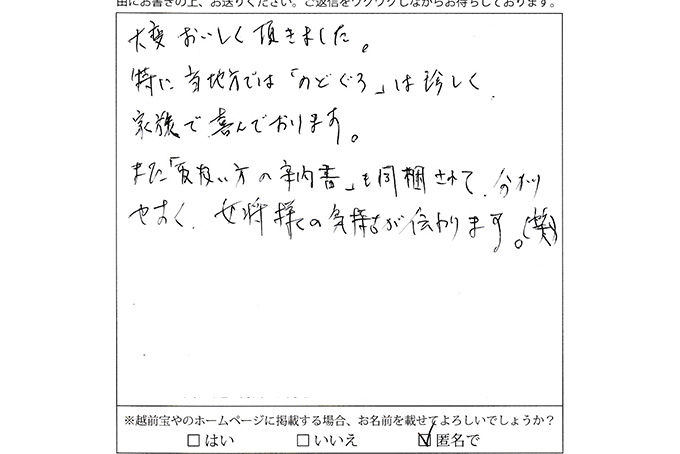 由にお書きの上、お送りください。ご返信をワクワクしながらお待ちしております。
大変おいしく頂きました。
特に当地方では「のどぐろ」は珍しく、
家族で喜んでおります。
また「取扱い方の案内書」も同梱されて、分かり
やすく、女将様の気持ちが伝わります。(笑)
※越前宝やのホームページに掲載する場合、お名前を載せてよろしいでしょうか？
□はい □いいえ ☑匿名で